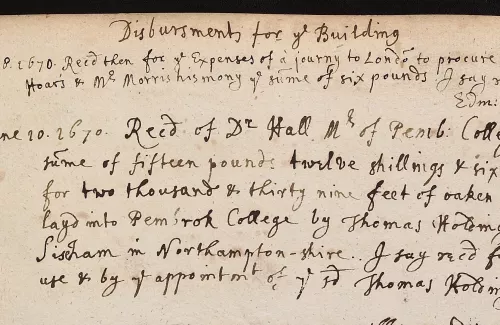 Disbursments for yᵉ Building
8. 1670. Recd then for yᵉ Expenses of a journy to Londō to procure
Hoars & Mʳ Morris his mony yᵉ sūme of six pounds I say r
Edm:
ne 10. 1670. Recd of Dʳ Hall Mʳ of Pemb: Colle
sūme of fifteen pounds twelve shillings & six
for two thousand & thirty nine feet of oaken
layd into Pembrok College by Thomas Holding
in Northampton-shire.. I say recd f
use & by yᵉ appointmt of yᵉ sd Thomas Holdin